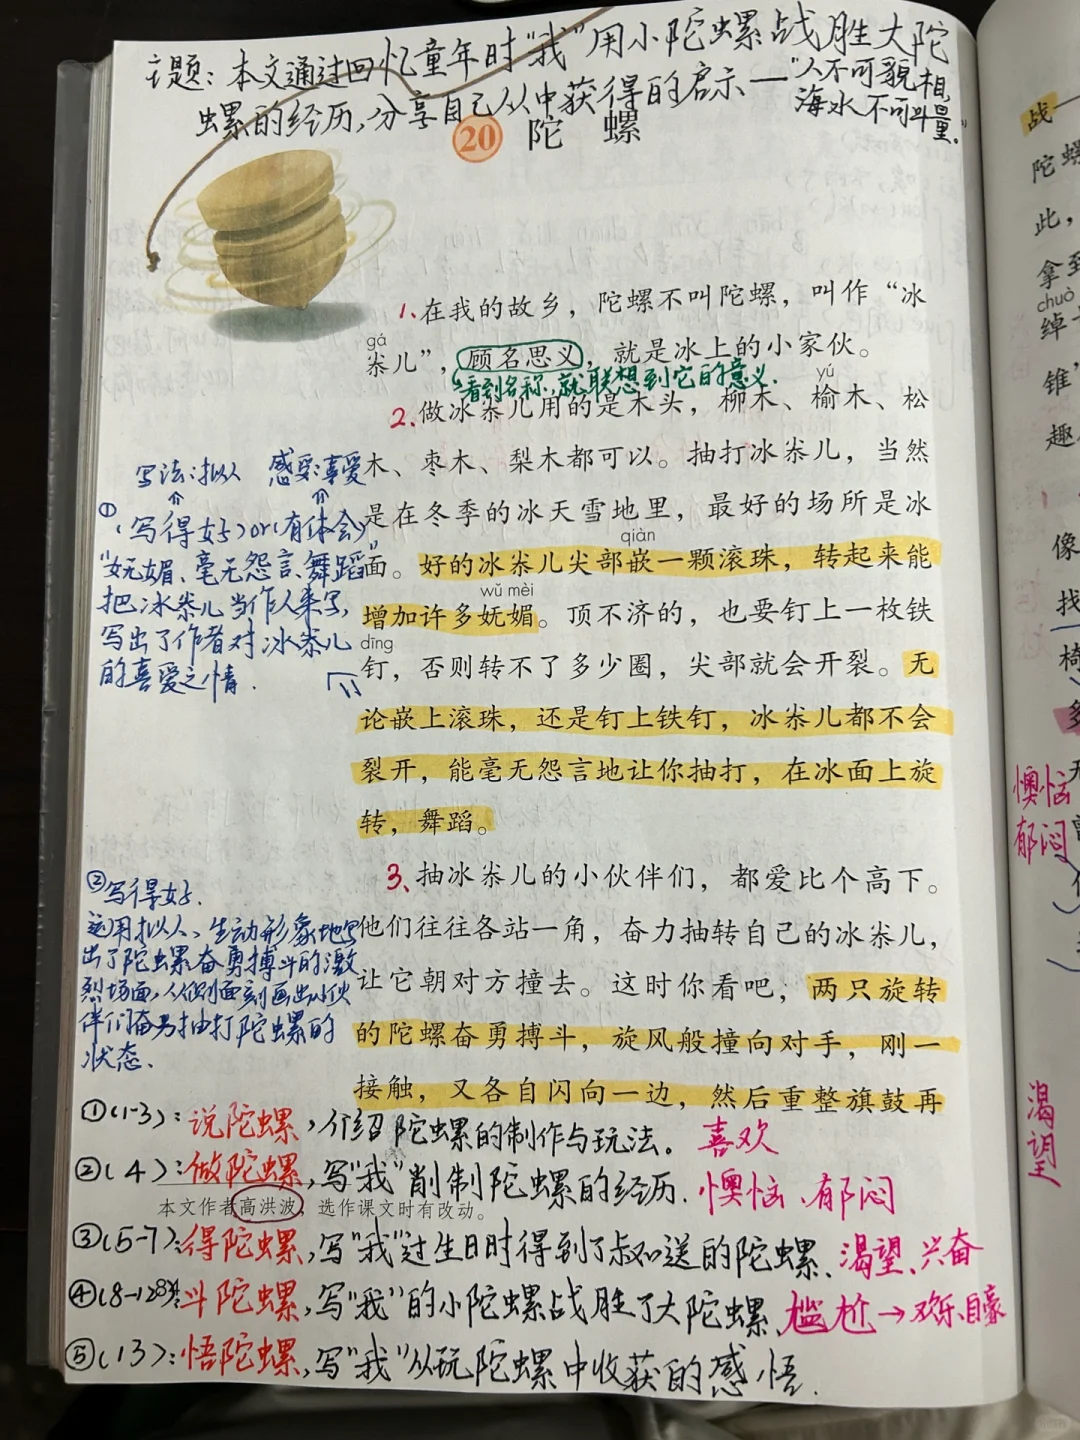 主题：本文通过回忆童年时“我”用小陀螺战胜大陀
螺的经历，分享自己从中获得的启示——“人不可貌相，
海水不可斗量。”
20 陀 螺
1.在我的故乡，陀螺不叫陀螺，叫作“冰
gá
尜儿”，顾名思义，就是冰上的小家伙。
看到名称，就联想到它的意义.
yú
2.做冰尜儿用的是木头，柳木、榆木、松
木、枣木、梨木都可以。抽打冰尜儿，当然
是在冬季的冰天雪地里，最好的场所是冰
qiàn
面。好的冰尜儿尖部嵌一颗滚珠，转起来能
wǔ mèi
增加许多妩媚。顶不济的，也要钉上一枚铁
dīng
钉，否则转不了多少圈，尖部就会开裂。无
论嵌上滚珠，还是钉上铁钉，冰尜儿都不会
裂开，能毫无怨言地让你抽打，在冰面上旋
转，舞蹈。
写法：拟人 感受：喜爱
①（写得好）or（有体会）
“妩媚、毫无怨言、舞蹈”
把冰尜儿当作人来写，
写出了作者对冰尜儿
的喜爱之情.
3、抽冰尜儿的小伙伴们，都爱比个高下。
他们往往各站一角，奋力抽转自己的冰尜儿，
让它朝对方撞去。这时你看吧，两只旋转
的陀螺奋勇搏斗，旋风般撞向对手，刚一
接触，又各自闪向一边，然后重整旗鼓再
②写得好.
运用拟人、生动形象地写
出了陀螺奋勇搏斗的激
烈场面，从侧面刻画出小伙
伴们奋力抽打陀螺的
状态.
①（1-3）：说陀螺，介绍陀螺的制作与玩法。喜欢
②（4）：做陀螺，写“我”削制陀螺的经历.懊恼、郁闷
本文作者高洪波，选作课文时有改动。
③（5-7）：得陀螺，写“我”过生日时得到了叔叔送的陀螺、渴望、兴奋
④（8-12）：斗陀螺，写“我”的小陀螺战胜了大陀螺、尴尬→欢乐、自豪
⑤（13）：悟陀螺，写“我”从玩陀螺中收获的感悟.
战
陀螺
此，
拿到
chuò
绰
锥
趣
像
找
椅
多
懊恼
郁闷
渴望